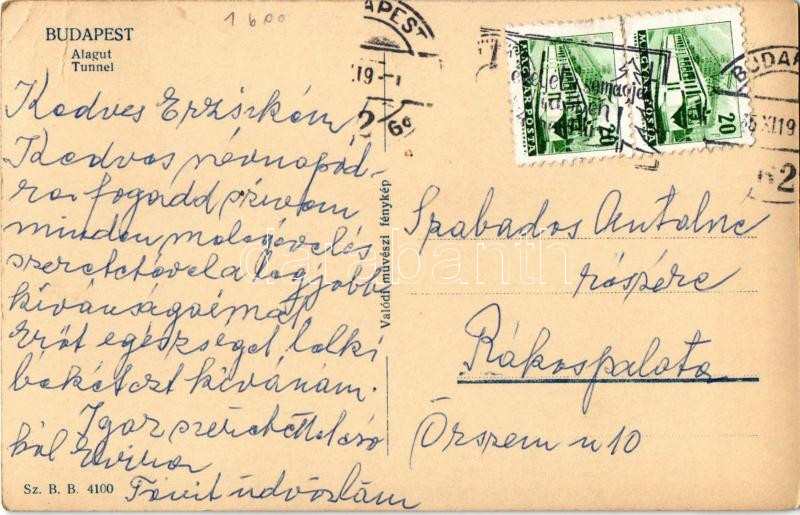 1600
BUDAPEST
Alagut
Tunnel
Kedves Erzsikém,
Kedves névnapod-
ra fogadd szívem
minden melegével és
szeretetével a legjobb
kívánságaimat
Erőt egészséget lelki
békét kívánom.
Igaz szeretettel csó
kol
Sz. B. B. 4100
Tónit üdvözlöm
Valódi művészi fénykép
BUDAPEST
MAGYAR POSTA
20
MAGYAR POSTA
20
BUDAP
XI19
Szabados Antalné
részére
Rákospalota
Őrszem u 10
darabanth